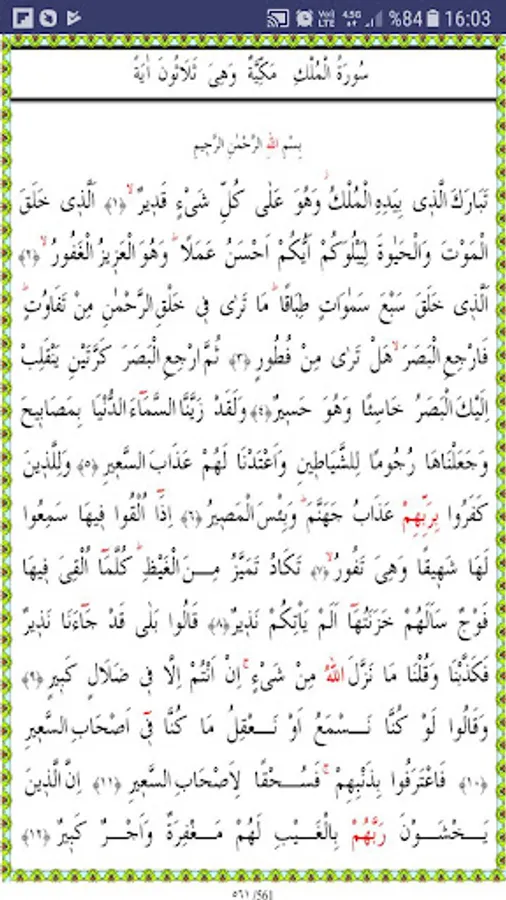 VoI LTE 4.5G %84 16:03
سُورَةُ الْمُلْكِ مَكِّيَّةٌ وَهِىَ ثَلَاثُونَ اٰيَةً
بِسْمِ اللهِ الرَّحْمٰنِ الرَّحِيمِ
تَبَارَكَ الَّذِى بِيَدِهِ الْمُلْكُۘ وَهُوَ عَلٰى كُلِّ شَىْءٍ قَدِيرٌۙ ﴿١﴾ اَلَّذِى خَلَقَ
الْمَوْتَ وَالْحَيٰوةَ لِيَبْلُوَكُمْ اَيُّكُمْ اَحْسَنُ عَمَلًاۜ وَهُوَ الْعَزِيزُ الْغَفُورُۙ ﴿٢﴾
اَلَّذِى خَلَقَ سَبْعَ سَمٰوَاتٍ طِبَاقًاۜ مَا تَرٰى فِى خَلْقِ الرَّحْمٰنِ مِنْ تَفَاوُتٍۜ
فَارْجِعِ الْبَصَرَۙ هَلْ تَرٰى مِنْ فُطُورٍ ﴿٣﴾ ثُمَّ ارْجِعِ الْبَصَرَ كَرَّتَيْنِ يَنْقَلِبْ
اِلَيْكَ الْبَصَرُ خَاسِئًا وَهُوَ حَسِيرٌ ﴿٤﴾ وَلَقَدْ زَيَّنَّا السَّمَٓاءَ الدُّنْيَا بِمَصَابِيحَ
وَجَعَلْنَاهَا رُجُومًا لِلشَّيَاطِينِ وَاَعْتَدْنَا لَهُمْ عَذَابَ السَّعِيرِ ﴿٥﴾ وَلِلَّذِينَ
كَفَرُوا بِرَبِّهِمْ عَذَابُ جَهَنَّمَۜ وَبِئْسَ الْمَصِيرُ ﴿٦﴾ اِذَٓا اُلْقُوا فِيهَا سَمِعُوا
لَهَا شَهِيقًا وَهِىَ تَفُورُۙ ﴿٧﴾ تَكَادُ تَمَيَّزُ مِنَ الْغَيْظِۜ كُلَّمَٓا اُلْقِىَ فِيهَا
فَوْجٌ سَاَلَهُمْ خَزَنَتُهَٓا اَلَمْ يَاْتِكُمْ نَذِيرٌ ﴿٨﴾ قَالُوا بَلٰى قَدْ جَٓاءَنَا نَذِيرٌ
فَكَذَّبْنَا وَقُلْنَا مَا نَزَّلَ اللهُ مِنْ شَىْءٍۚ اِنْ اَنْتُمْ اِلَّا فِى ضَلَالٍ كَبِيرٍ ﴿٩﴾
وَقَالُوا لَوْ كُنَّا نَسْمَعُ اَوْ نَعْقِلُ مَا كُنَّا فِٓى اَصْحَابِ السَّعِيرِ
﴿١٠﴾ فَاعْتَرَفُوا بِذَنْبِهِمْۚ فَسُحْقًا لِاَصْحَابِ السَّعِيرِ ﴿١١﴾ اِنَّ الَّذِينَ
يَخْشَوْنَ رَبَّهُمْ بِالْغَيْبِ لَهُمْ مَغْفِرَةٌ وَاَجْرٌ كَبِيرٌ ﴿١٢﴾
٥٦١/561